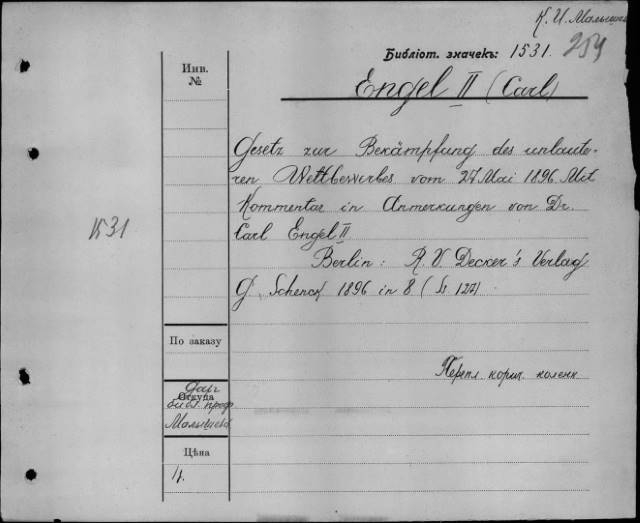 К. И. Малышев
Библіот. значекъ: 1531.
254
Инв.
№
Engel II (Carl)
Gesetz zur Bekämpfung des unlaute-
ren Wettbewerbes vom 27 Mai 1896. Mit
Kommentar in Anmerkungen von Dr.
Carl Engel II
1531
Berlin: R. V. Decker's Verlag
G. Schenck 1896 in 8 (Ss 127)
По заказу
Перепл. кориш. коленк
Откуда
библ. проф
Малышева
Цѣна